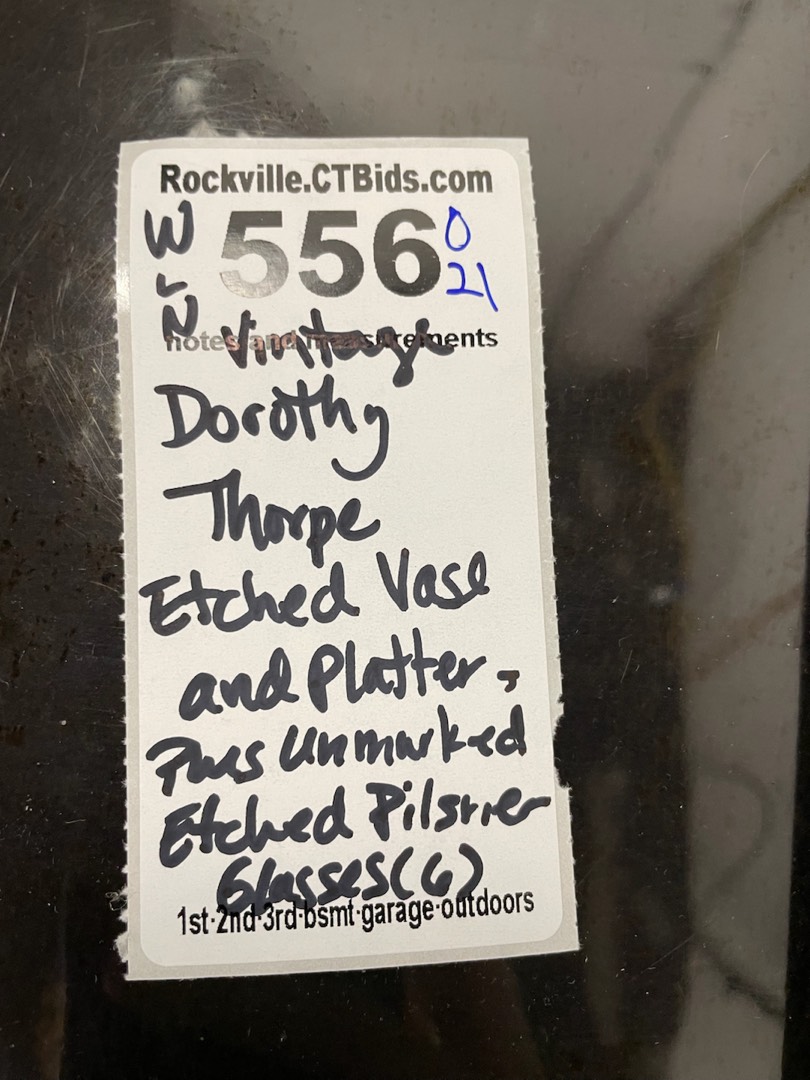 Rockville.CTBids.com
W 556 0
L 21
N
notes and measurements
Vintage
Dorothy
Thorpe
Etched Vase
and Platter,
Plus Unmarked
Etched Pilsner
Glasses (6)
1st·2nd·3rd·bsmt·garage·outdoors